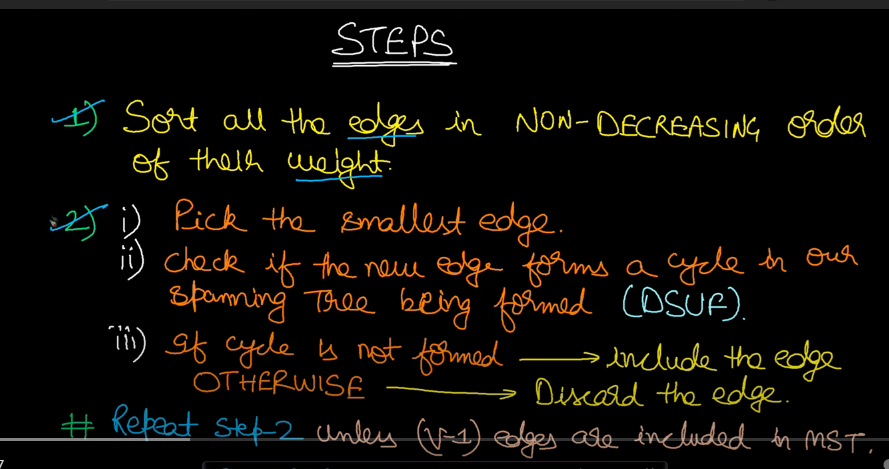 STEPS
1) Sort all the edges in NON-DECREASING order
of their weight.
2) i) Pick the smallest edge.
ii) check if the new edge forms a cycle in our
spanning Tree being formed (DSUF).
iii) If cycle is not formed → include the edge
OTHERWISE → Discard the edge.
# Repeat Step-2 unless (V-1) edges are included in MST.